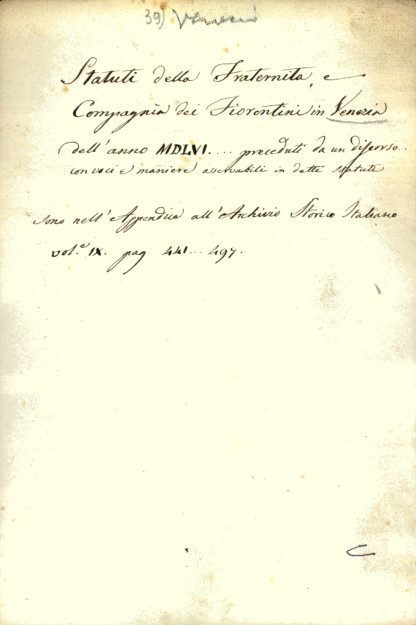 39)
Statuti della Fraternita, e
Compagnia dei Fiorentini in Venezia
dell'anno MDLVI.... preceduti da un discorso..
con voci e maniere osservabili in detti statuti
sono nell'Appendice all'Archivio Storico Italiano
vol.e IX. pag 441... 497.